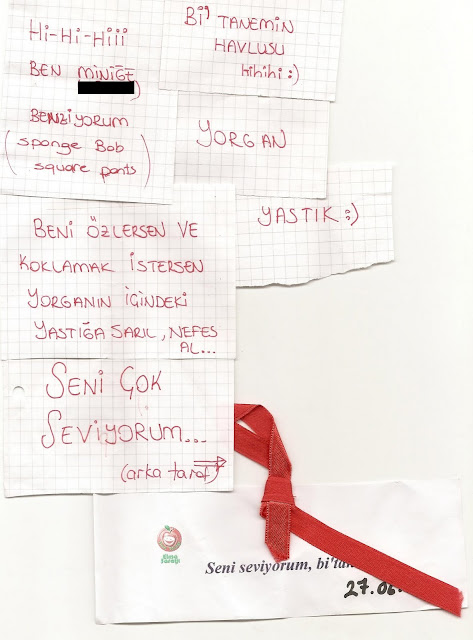 Hi-Hi-Hiii
BEN MİNİĞE
BENZİYORUM
(sponge Bob
square pants)
Bİ' TANEMİN
HAVLUSU
hihihi :)
YORGAN
YASTIK :)
BENİ ÖZLERSEN VE
KOKLAMAK İSTERSEN
YORGANIN İÇİNDEKİ
YASTIĞA SARIL, NEFES
AL...
SENİ ÇOK
SEVİYORUM...
(arka taraf)
Elma
Seni seviyorum, bi'
27.06.